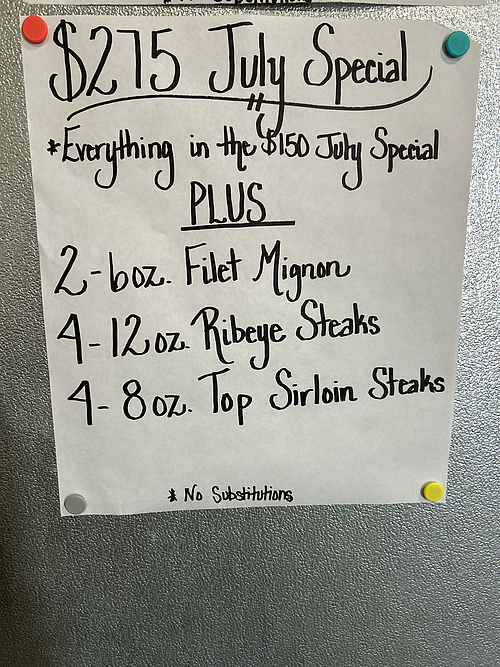 $275 July Special
*Everything in the $150 July Special
PLUS
2-6oz. Filet Mignon
4-12oz. Ribeye Steaks
4-8oz. Top Sirloin Steaks
* No Substitutions